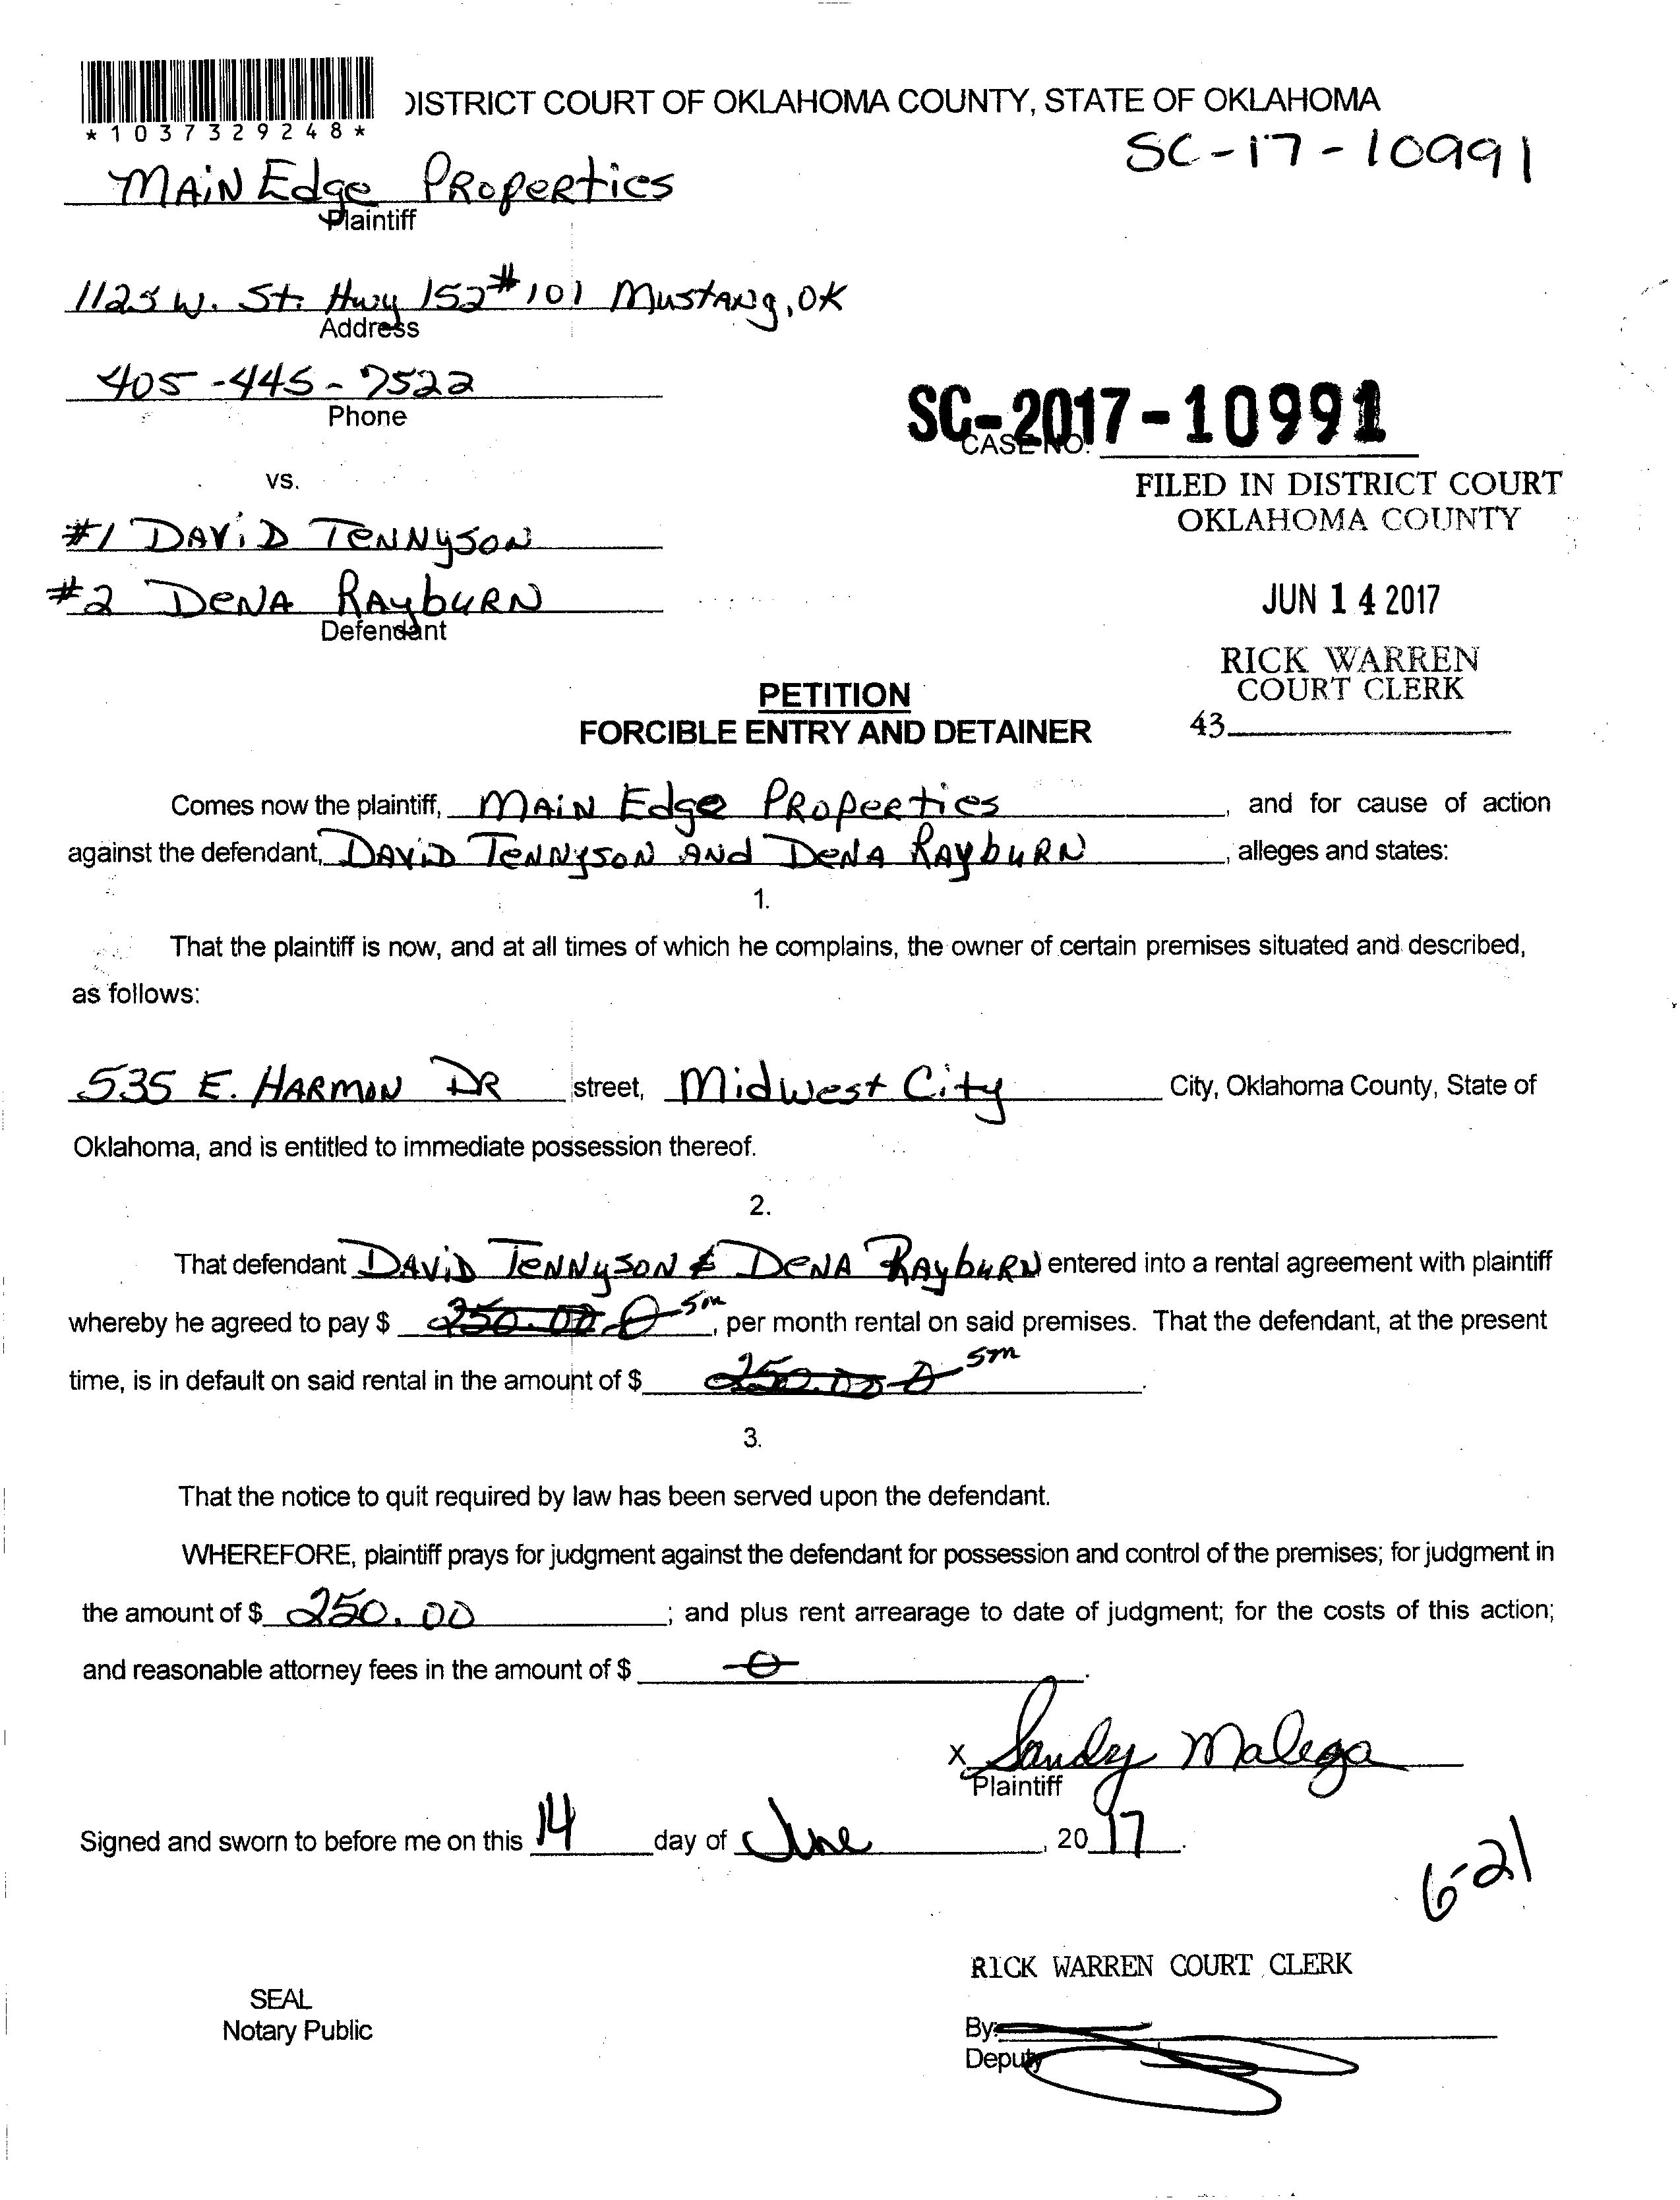 *1037329248*
DISTRICT COURT OF OKLAHOMA COUNTY, STATE OF OKLAHOMA
SC-17-10991
MAiN Edge PRopeRties
Plaintiff
1123 W. St. Hwy 152 #101 MustANg, OK
Address
405-445-7522
Phone
SC-2017-10991
CASE NO.
vs.
FILED IN DISTRICT COURT
OKLAHOMA COUNTY
#1 DAViD TeNNysoN
#2 DeNA RAybuRN
Defendant
JUN 14 2017
RICK WARREN
COURT CLERK
43
PETITION
FORCIBLE ENTRY AND DETAINER
Comes now the plaintiff, MAiN Edge PRopeRties, and for cause of action
against the defendant, DAViD TeNNysoN ANd DeNA RaybuRN, alleges and states:
1.
That the plaintiff is now, and at all times of which he complains, the owner of certain premises situated and described,
as follows:
535 E. HARMON DR street, Midwest City City, Oklahoma County, State of
Oklahoma, and is entitled to immediate possession thereof.
2.
That defendant DAViD TeNNysoN & DeNA RaybuRN entered into a rental agreement with plaintiff
whereby he agreed to pay $ 250.00 0 sm, per month rental on said premises. That the defendant, at the present
time, is in default on said rental in the amount of $ 250.00 0 sm.
3.
That the notice to quit required by law has been served upon the defendant.
WHEREFORE, plaintiff prays for judgment against the defendant for possession and control of the premises; for judgment in
the amount of $ 250.00; and plus rent arrearage to date of judgment; for the costs of this action;
and reasonable attorney fees in the amount of $ 0.
x Sandy Malega
Plaintiff
Signed and sworn to before me on this 14 day of June, 2017.
6-21
RICK WARREN COURT CLERK
SEAL
Notary Public
By:
Deputy